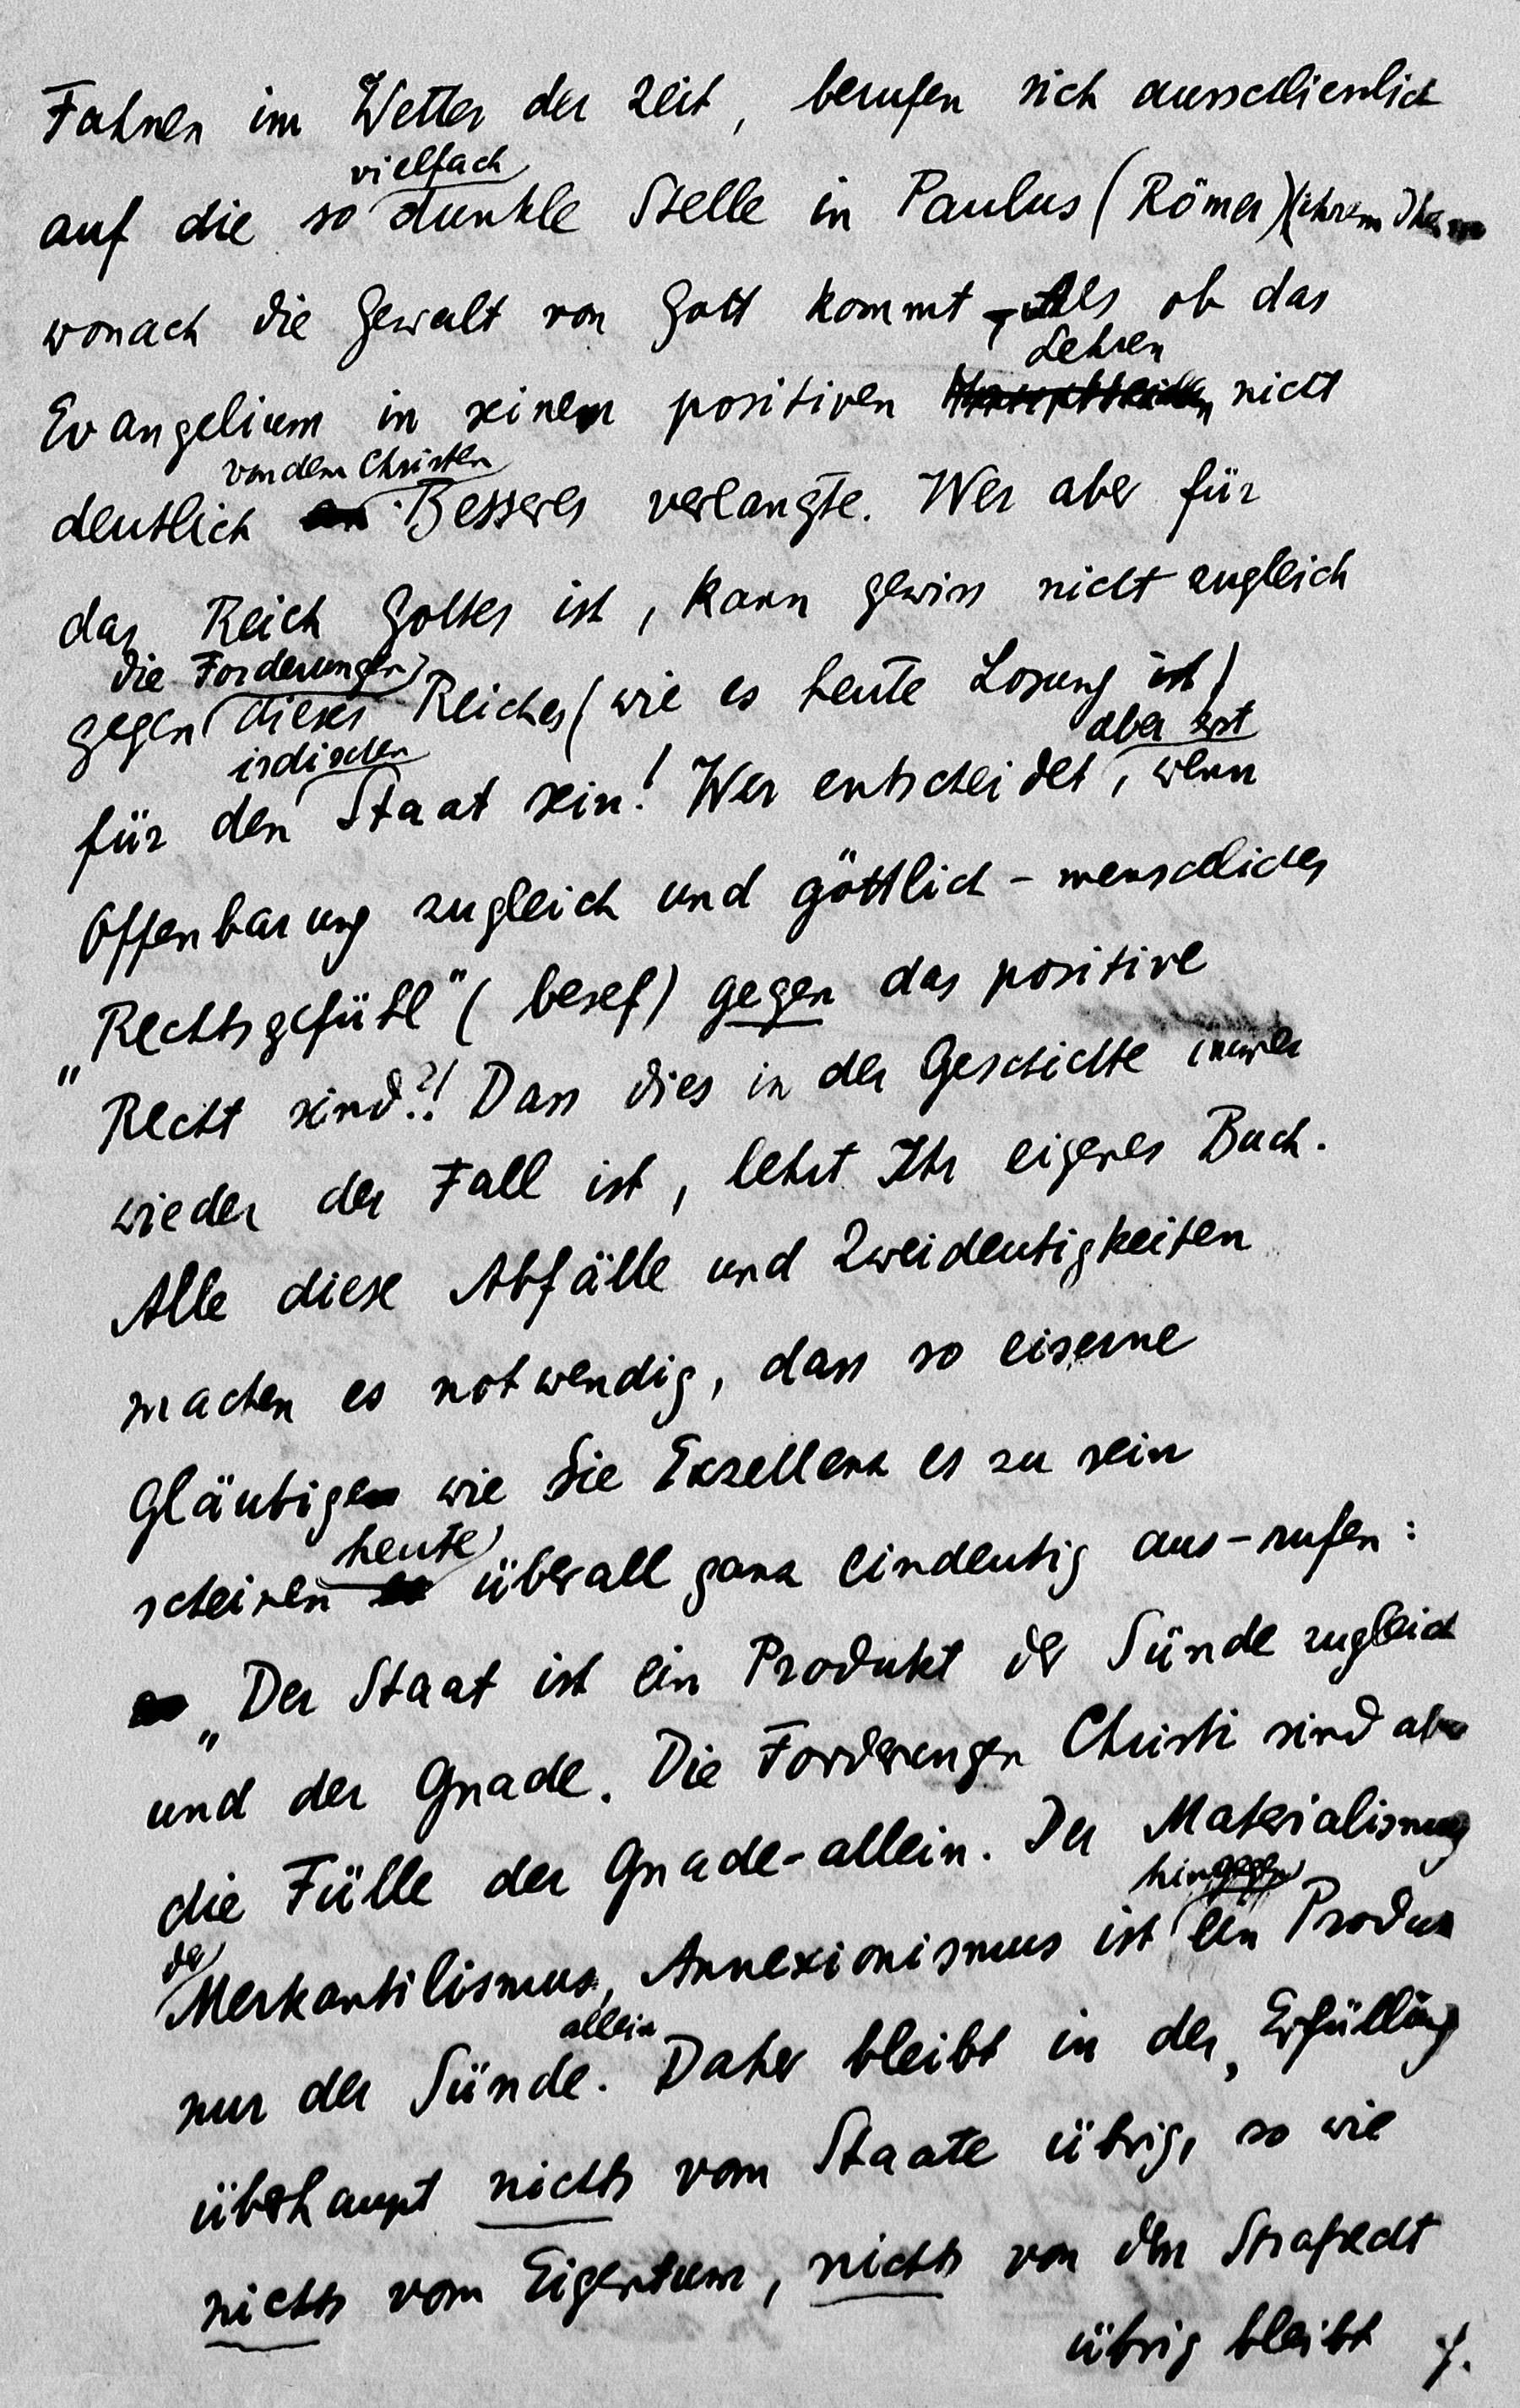 Fahnen im Wetter der Zeit, berufen sich ausschliesslich
vielfach
auf die so dunkle Stelle in Paulus (Römer) (ihrem
wonach die Gewalt von Gott kommt – Als ob das
Lehren
Evangelium in seinen positiven nicht
von dem Christen
deutlich Besseres verlangte. Wer aber für
das Reich Gottes ist, kann gewiss nicht zugleich
die Forderungen
gegen dieses Reiches (wie es heute Losung ist)
irdischen
aber erst
für den Staat sein! Wer entscheidet, wenn
Offenbarung zugleich und göttlich-menschliches
„Rechtsgefühl" ( ) gegen das positive
Recht sind?! Dass dies in der Geschichte immer
wieder der Fall ist, lehrt Ihr eigenes Buch.
Alle diese Abfälle und Zweideutigkeiten
machen es notwendig, dass so eiserne
Gläubige wie Sie Exzellenz es zu sein
heute
scheinen überall ganz eindeutig aus-rufen:
„Der Staat ist ein Produkt der Sünde zugleich
und der Gnade. Die Forderungen Christi sind aber
die Fülle der Gnade-allein. Der Materialismus
hingegen
der
Merkantilismus, Annexionismus ist ein Produkt
allein
nur der Sünde. Daher bleibt in der „Erfüllung
überhaupt nichts vom Staate übrig, so wie
nichts vom Eigentum, nichts von dem Strafrecht
übrig bleibt